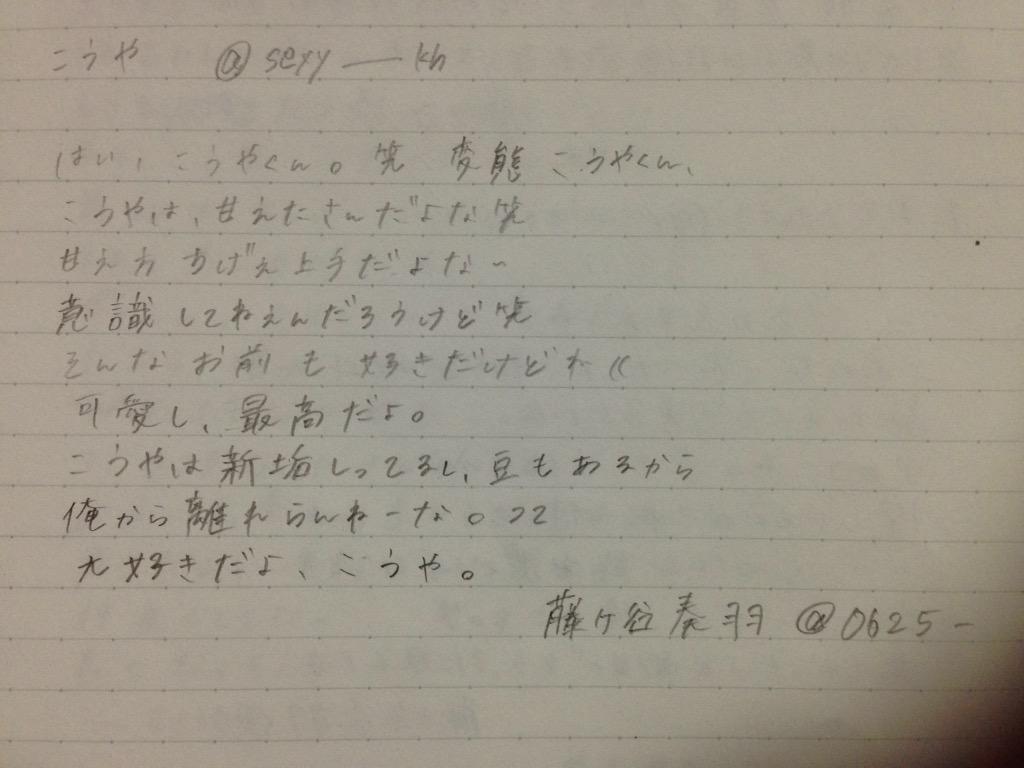 こうや @sexy——kh
はい、こうやくん。笑 変態こうやくん、
こうやは、甘えたさんだよな笑
甘え方 ちげぇ上手だよな〜
意識してねえんだろうけど笑
そんなお前も好きだけどね((
可愛し、最高だよ。
こうやは新垢しってるし、豆もあるから
俺から離れらんねーな。22
大好きだよ、こうや。
藤ヶ谷泰羽 @0625-